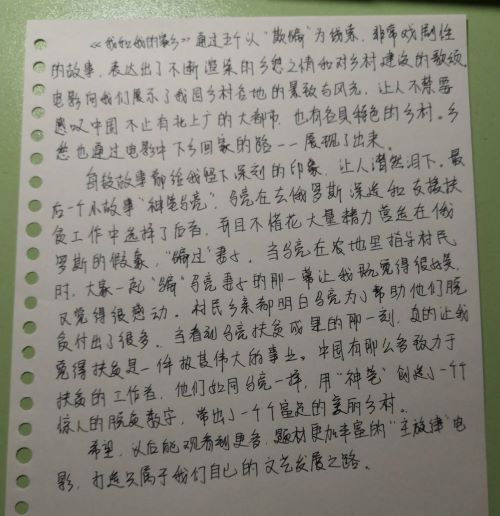 《我和我的家乡》通过五个以"欺骗"为线索,非常戏剧性
的故事,表达出了不断渲染的乡愁之情和对乡村建设的歌颂。
电影向我们展示了我国乡村各地的景致与风光,让人不禁要
感叹中国不止有北上广的大都市,也有各具特色的乡村。乡
愁也通过电影中下乡回家的路一一展现了出来。
每段故事都给我留下深刻的印象,让人潸然泪下。最
后一个小故事"神笔马亮",马亮在去俄罗斯深造和支援扶
贫工作中选择了后者,并且不惜花大量精力营造在俄
罗斯的假象,"骗过"妻子。当马亮在农地里指导村民
时,大家一起"骗"马亮妻子的那一幕让我既觉得很好笑,
又觉得很感动。村民乡亲都明白马亮为了帮助他们脱
贫付出了很多。当看到马亮扶贫成果的那一刻,真的让我
觉得扶贫是一件极其伟大的事业。中国有那么多致力于
扶贫的工作者,他们如同马亮一样,用"神笔"创造了一个个
惊人的脱贫数字,带出了一个个富足的美丽乡村。
希望,以后能观看到更多,题材更加丰富的"主旋律"电
影,打造只属于我们自己的文艺发展之路。